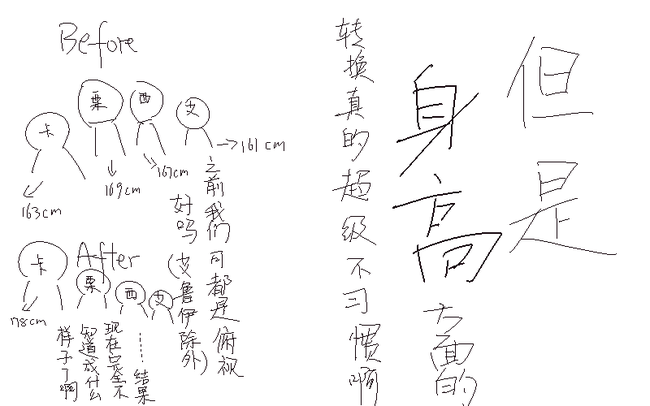 但是
身高方面的
转换真的超级不习惯啊
Before
卡
栗
西
艾
163cm
169cm
167cm
161cm
之前我们可都是俯视
好吗(艾鲁伊除外)
After
卡
栗
西
艾
178cm
……结果
现在完全不
知道成什么
样子了啊